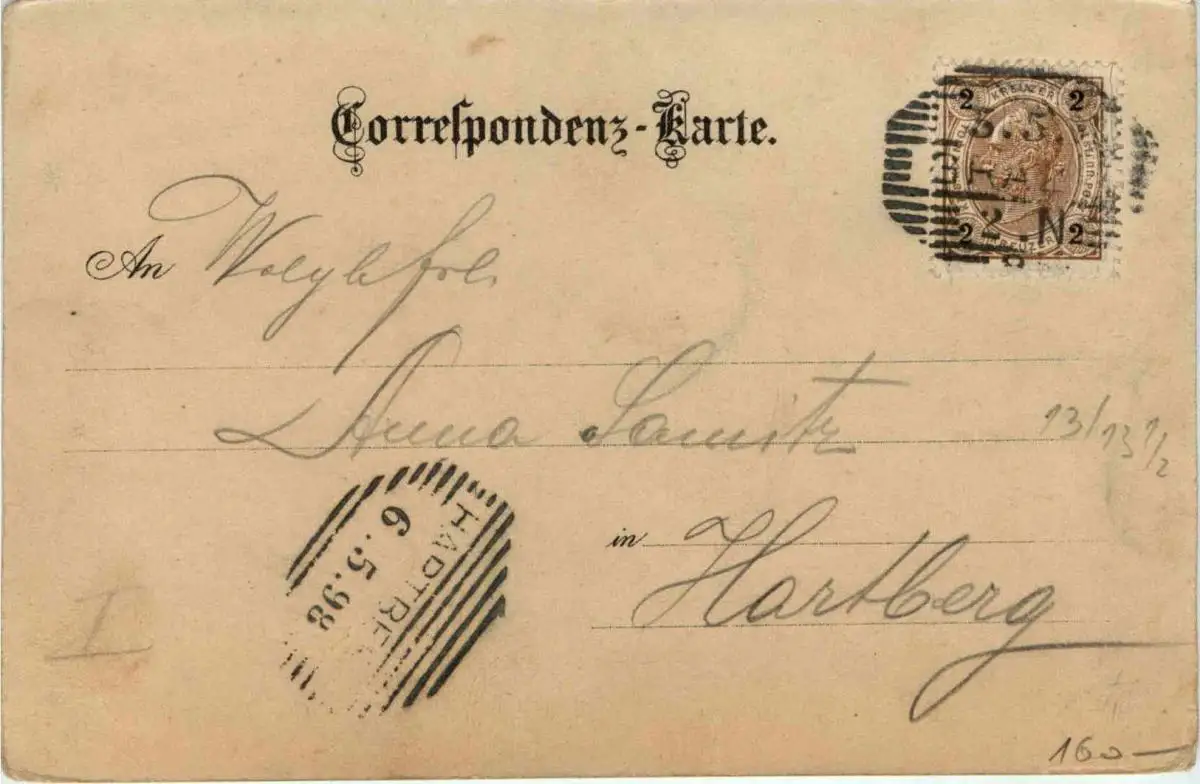 Correspondenz-Karte.
2 KREUZER 2
2 KREUZER 2
An
Anna Samitz
13/13 1/2
in Hartberg
HADTBE
6.5.98
I
160—